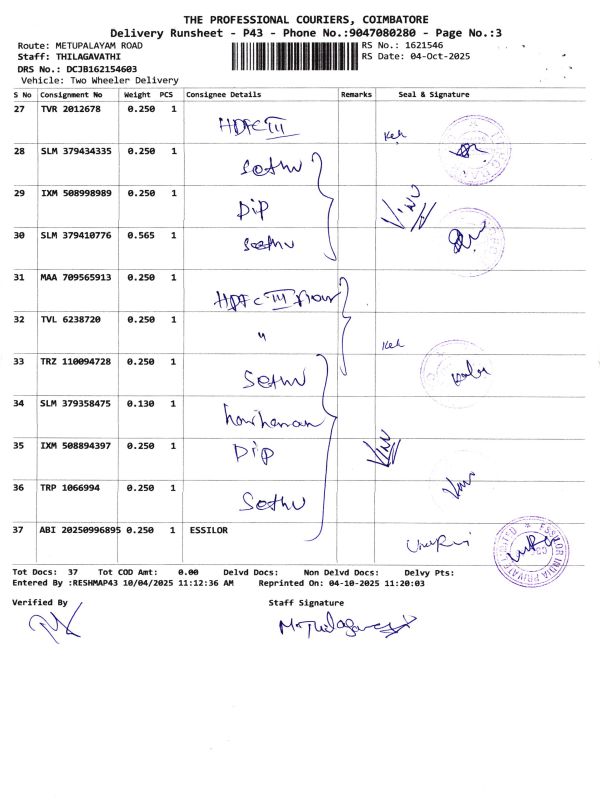 THE PROFESSIONAL COURIERS, COIMBATORE
Delivery Runsheet - P43 - Phone No.:9047080280 - Page No.:3
Route: METUPALAYAM ROAD RS No.: 1621546
Staff: THILAGAVATHI RS Date: 04-Oct-2025
DRS No.: DCJB162154603
Vehicle: Two Wheeler Delivery
S No Consignment No Weight PCS Consignee Details Remarks Seal & Signature
27 TVR 2012678 0.250 1 HDFC III
28 SLM 379434335 0.250 1 Sethu
29 IXM 508998989 0.250 1 Dip Vinu
30 SLM 379410776 0.565 1 Sethu
31 MAA 709565913 0.250 1 HDFC III floor
32 TVL 6238720 0.250 1 "
33 TRZ 110094728 0.250 1 Sethu
34 SLM 379358475 0.130 1
35 IXM 508894397 0.250 1 Dip
36 TRP 1066994 0.250 1 Sethu
37 ABI 20250996895 0.250 1 ESSILOR
ESSILOR INDIA PRIVATE LIMITED
Tot Docs: 37 Tot COD Amt: 0.00 Delvd Docs: Non Delvd Docs: Delvy Pts:
Entered By :RESHMAP43 10/04/2025 11:12:36 AM Reprinted On: 04-10-2025 11:20:03
Verified By Staff Signature